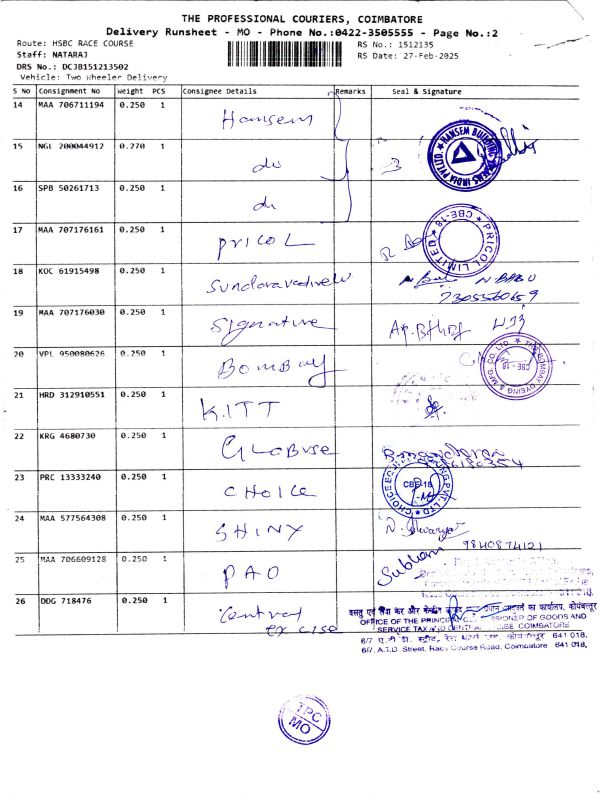 THE PROFESSIONAL COURIERS, COIMBATORE
Delivery Runsheet - MO - Phone No.:0422-3505555 - Page No.:2
Route: HSBC RACE COURSE
RS No.: 1512135
Staff: NATARAJ
RS Date: 27-Feb-2025
DRS No.: DCJB151213502
Vehicle: Two Wheeler Delivery
S No Consignment No Weight PCS Consignee Details Remarks Seal & Signature
14 MAA 706711194 0.250 1 Hansem
HANSEM BUILDING INDIA PVT LTD.
15 NGL 200044912 0.270 1 do
16 SPB 50261713 0.250 1 do
17 MAA 707176161 0.250 1 PRICOL
PRICOL LIMITED CBE-18
18 KOC 61915498 0.250 1 Sundaravadivelu N BABU
7305560659
19 MAA 707176030 0.250 1 Signature
20 VPL 950080626 0.250 1 BOMBAY
THE BOMBAY DYEING & MFG. CO. LTD. CBE - 18
21 HRD 312910551 0.250 1 K.ITT
22 KRG 4680730 0.250 1 GLOBUSE
23 PRC 13333240 0.250 1 CHOICE
CHOICE PVT. LTD CBE-18
24 MAA 577564308 0.250 1 SHINY
9840874121
25 MAA 706609128 0.250 1 PAO Subham
26 DDG 718476 0.250 1 Central
ex cise
वस्तु एवं सेवा कर और केन्द्रीय का कार्यालय, कोयंबत्तूर
OFFICE OF THE PRINCIPAL COMMISSIONER OF GOODS AND
SERVICE TAX AND CENTRAL EXCISE COIMBATORE
6/7 ए.टी.डी. स्ट्रीट, रेस कोर्स कोयंबत्तूर 641 018.
6/7, A.T.D. Street, Race Course Road, Coimbatore 641 018.
TPC
MO